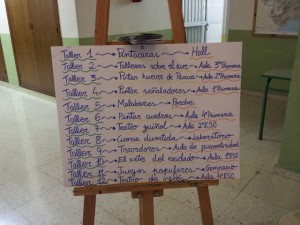 Taller 1 → Pintacaras → Hall
Taller 2 → Talleres sobre el ave → Aula 3º Primaria
Taller 3 → Pintar huevos de Pascua → Aula 2º Primaria
Taller 4 → Pintar señaladores → Aula 1º Primaria
Taller 5 → Malabares → Porche
Taller 6 → Pintar cuadros → Aula 4º Primaria
Taller 7 → Teatro guiñol → Aula 2º ESO
Taller 8 → Ciencia divertida → Laboratorio
Taller 9 → Trovadores → Aula de psicomotricidad
Taller 10 → El arte del reciclado → Aula 1º ESO
Taller 11 → Juegos populares → Gimnasio
Taller 12 → Teatro de → Aula 4º ESO